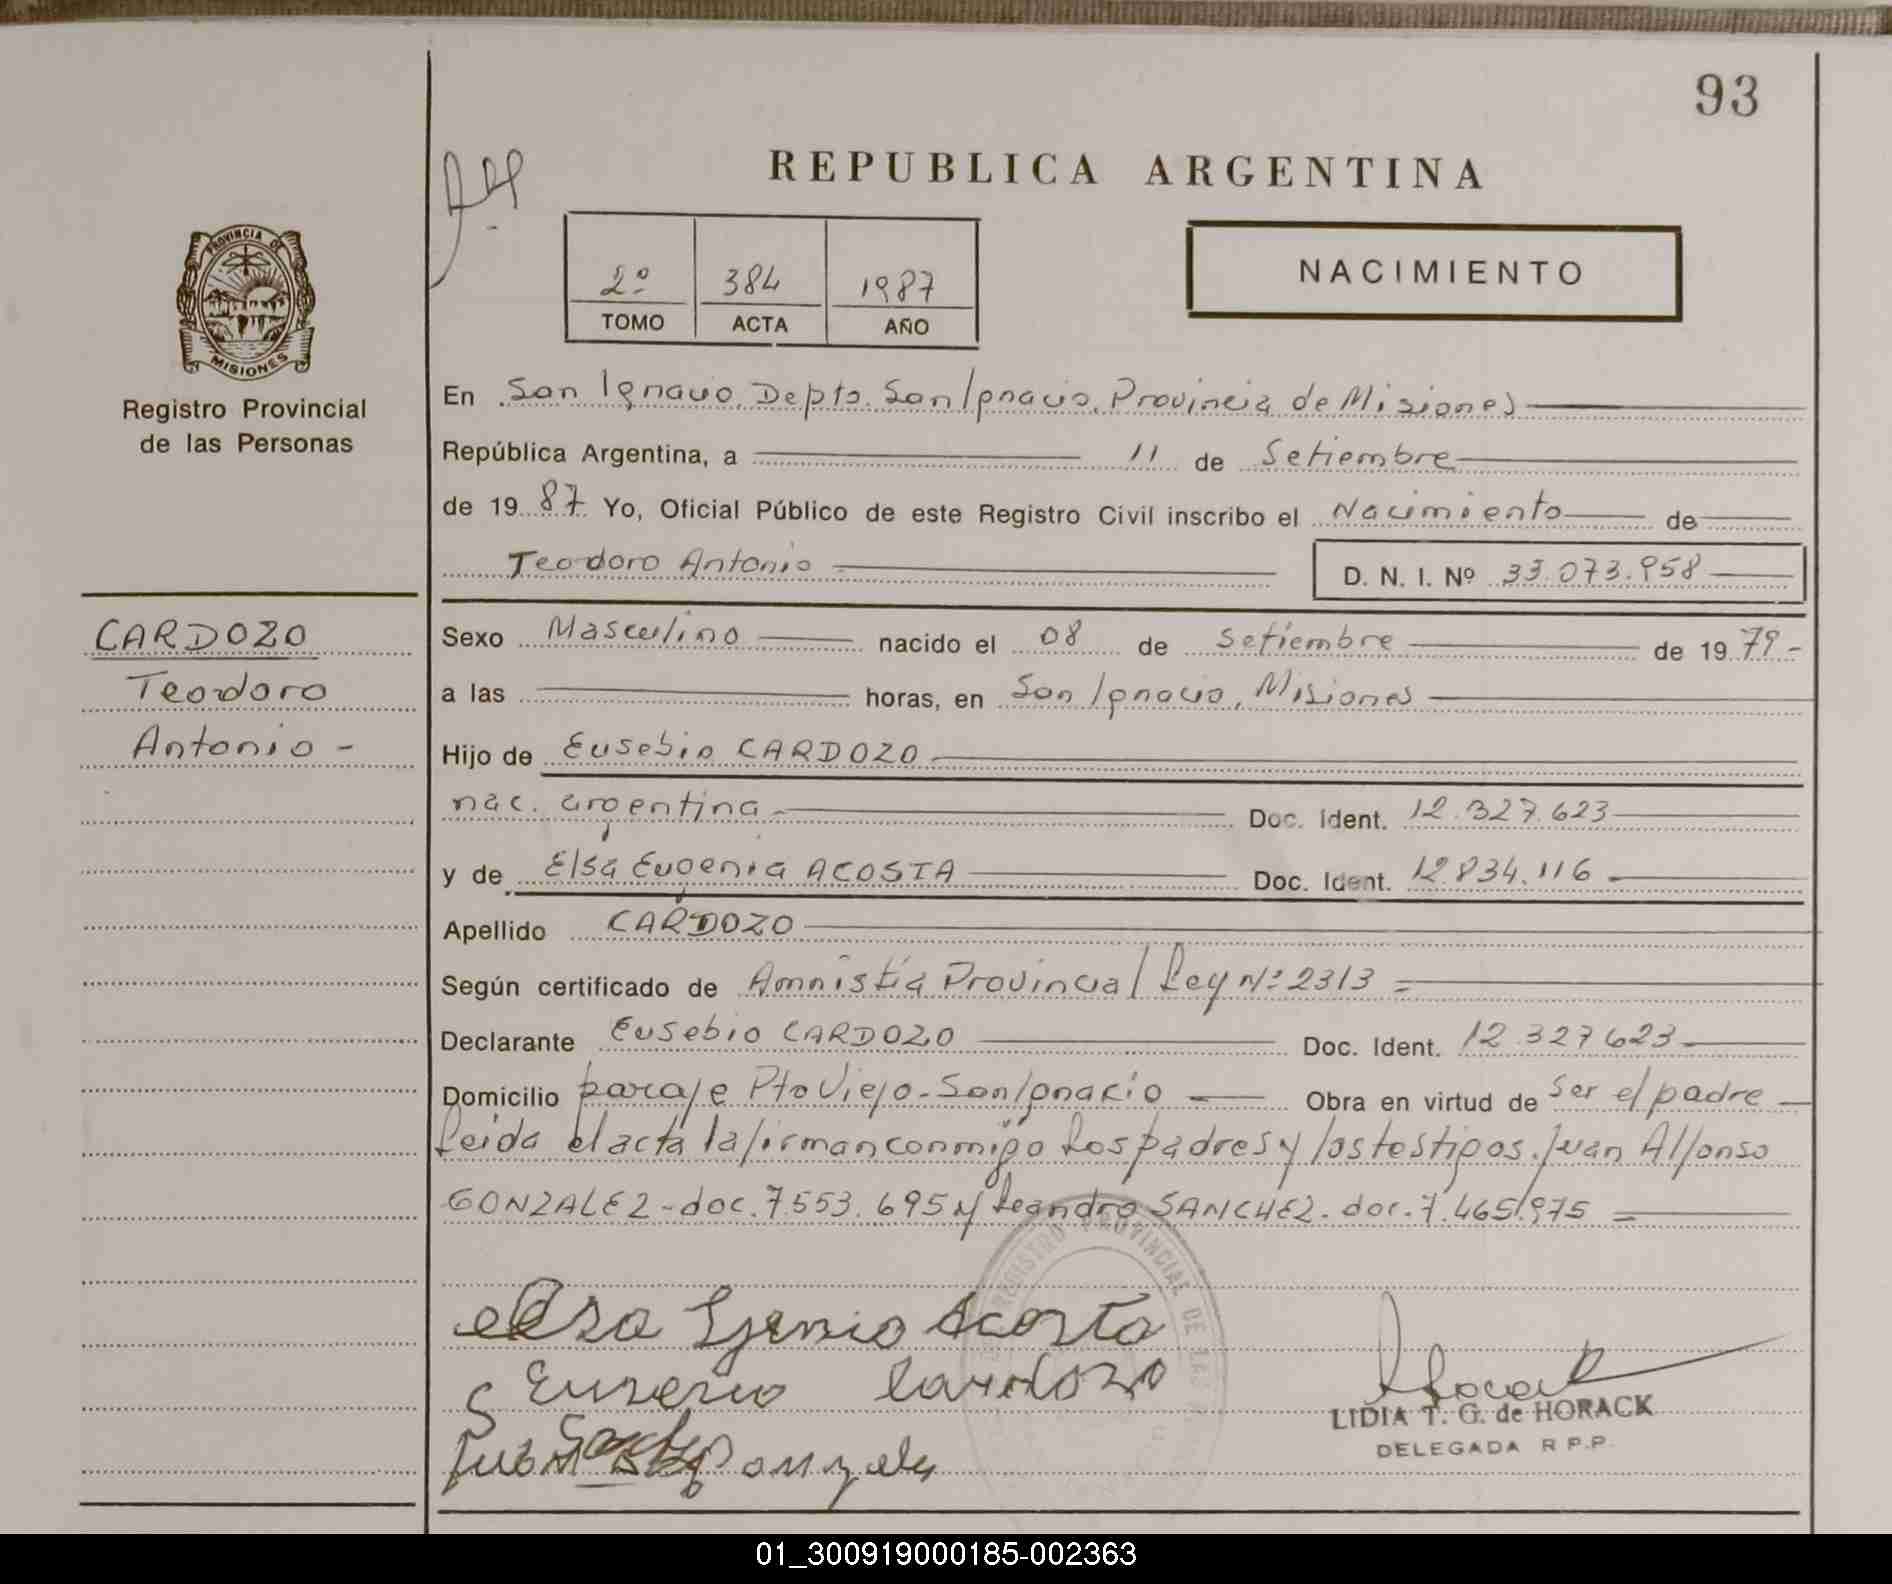 93
REPUBLICA ARGENTINA
PROVINCIA DE
MISIONES
Registro Provincial
de las Personas
2º 384 1987
TOMO ACTA AÑO
NACIMIENTO
En San Ignacio, Depto. San Ignacio, Provincia de Misiones
República Argentina, a 11 de Setiembre
de 1987 Yo, Oficial Público de este Registro Civil inscribo el Nacimiento de
Teodoro Antonio D. N. I. Nº 33.073.958
CARDOZO
Teodoro
Antonio -
Sexo Masculino nacido el 08 de Setiembre de 1979-
a las horas, en San Ignacio, Misiones
Hijo de Eusebio CARDOZO
nac. argentina - Doc. Ident. 12.327.623
y de Elsa Eugenia ACOSTA Doc. Ident. 12.834.116
Apellido CARDOZO
Según certificado de Amnistía Provincial Ley Nº 2313
Declarante Eusebio CARDOZO Doc. Ident. 12.327.623
Domicilio paraje Pto Viejo - San Ignacio Obra en virtud de Ser el padre
Leida el acta la firman conmigo los padres y los testigos. Juan Alfonso
GONZALEZ - doc. 7.553.695 y Leandro SANCHEZ. doc. 7.465.975
REGISTRO PROVINCIAL DE LAS
Elsa Acosta
Cardozo
Juan
LIDIA T. G. de HORACK
DELEGADA R.P.P.
01_300919000185-002363